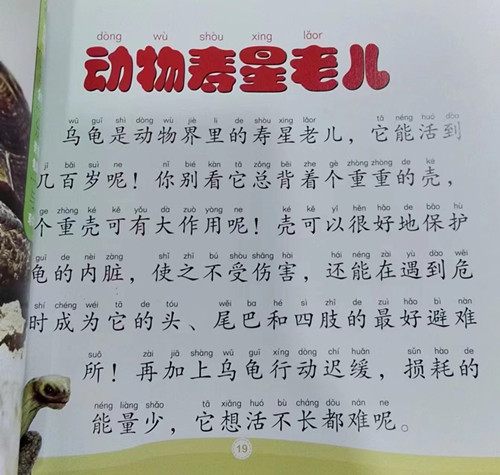 dòng wù shòu xing lǎor
动物寿星老儿
wū guī shì dòng wù jiè li de shòu xing lǎor tā néng huó dào
乌龟是动物界里的寿星老儿，它能活到
jǐ bǎi suì ne nǐ bié kàn tā zǒng bēi zhe gè zhòng zhòng de ké
几百岁呢！你别看它总背着个重重的壳，
ge zhòng ké kě yǒu dà zuò yòng ne ké kě yǐ hěn hǎo de bǎo hù
个重壳可有大作用呢！壳可以很好地保护
guī de nèi zàng shǐ zhī bú shòu shāng hài hái néng zài yù dào wēi
龟的内脏，使之不受伤害，还能在遇到危
shí chéng wéi tā de tóu wěi ba hé sì zhī de zuì hǎo bì nàn
时成为它的头、尾巴和四肢的最好避难
suǒ zài jiā shàng wū guī xíng dòng chí huǎn sǔn hào de
所！再加上乌龟行动迟缓，损耗的
néng liàng shǎo tā xiǎng huó bù cháng dōu nán ne
能量少，它想活不长都难呢。
19